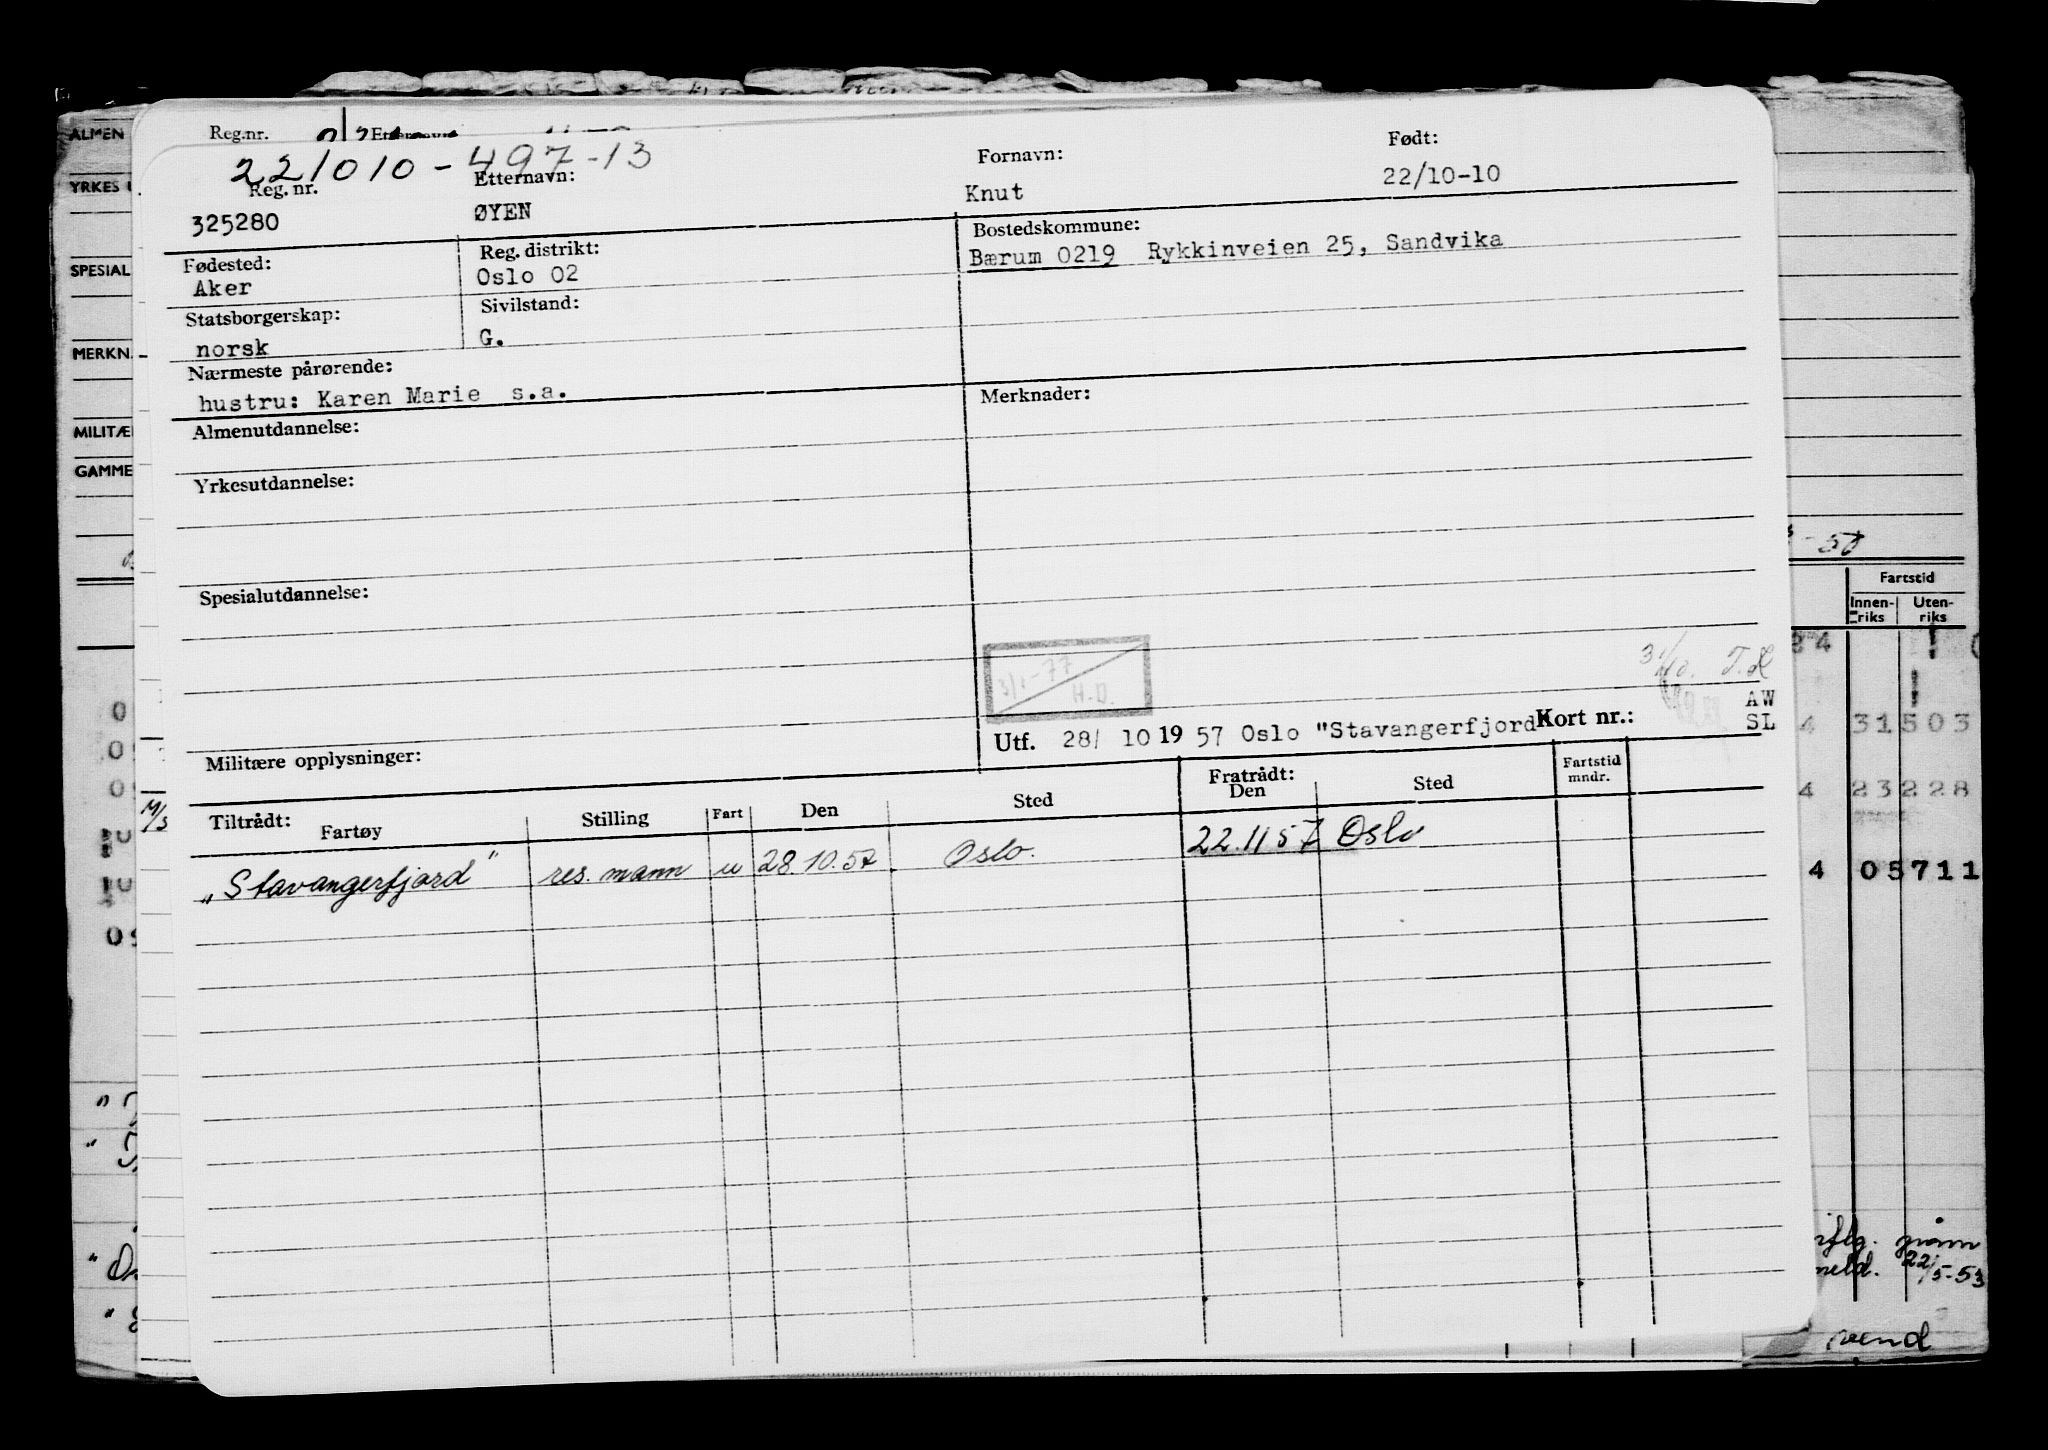 Reg.nr. Etternavn
221010-497-13
Reg. nr. Etternavn: Fornavn: Født:
325280 ØYEN Knut 22/10-10
Fødested: Reg. distrikt: Bostedskommune:
Aker Oslo 02 Bærum 0219 Rykkinveien 25, Sandvika
Statsborgerskap: Sivilstand:
norsk G.
Nærmeste pårørende:
hustru: Karen Marie s.a.
Merknader:
Almenutdannelse:
Yrkesutdannelse:
Spesialutdannelse:
3/1-77
H.D.
AW
SL
Utf. 28/ 10 19 57 Oslo "Stavangerfjord" Kort nr.:
Militære opplysninger:
Tiltrådt: Fartøy Stilling Fart Den Sted Fratrådt: Den Sted Fartstid mndr.
"Stavangerfjord" res. mann u 28.10.57 Oslo. 22.11 57 Oslo
ALMEN
YRKES
SPESIAL
MERKN.
MILITÆ
GAMME
M/S
- 50
Fartstid
Innen-riks Uten-riks
4 31503
4 23228
4 05711
meld. 22/5-53
vend